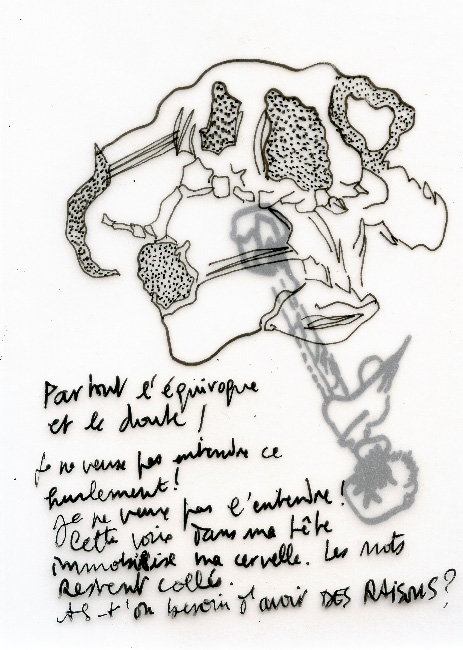 Partout l'équivoque
et le doute !
Je ne veux pas entendre ce
hurlement !
Je ne veux pas l'entendre !
Cette voix dans ma tête
immobilise ma cervelle. Les mots
Restent collés.
As-t'on besoin d'avoir DES RAISONS ?